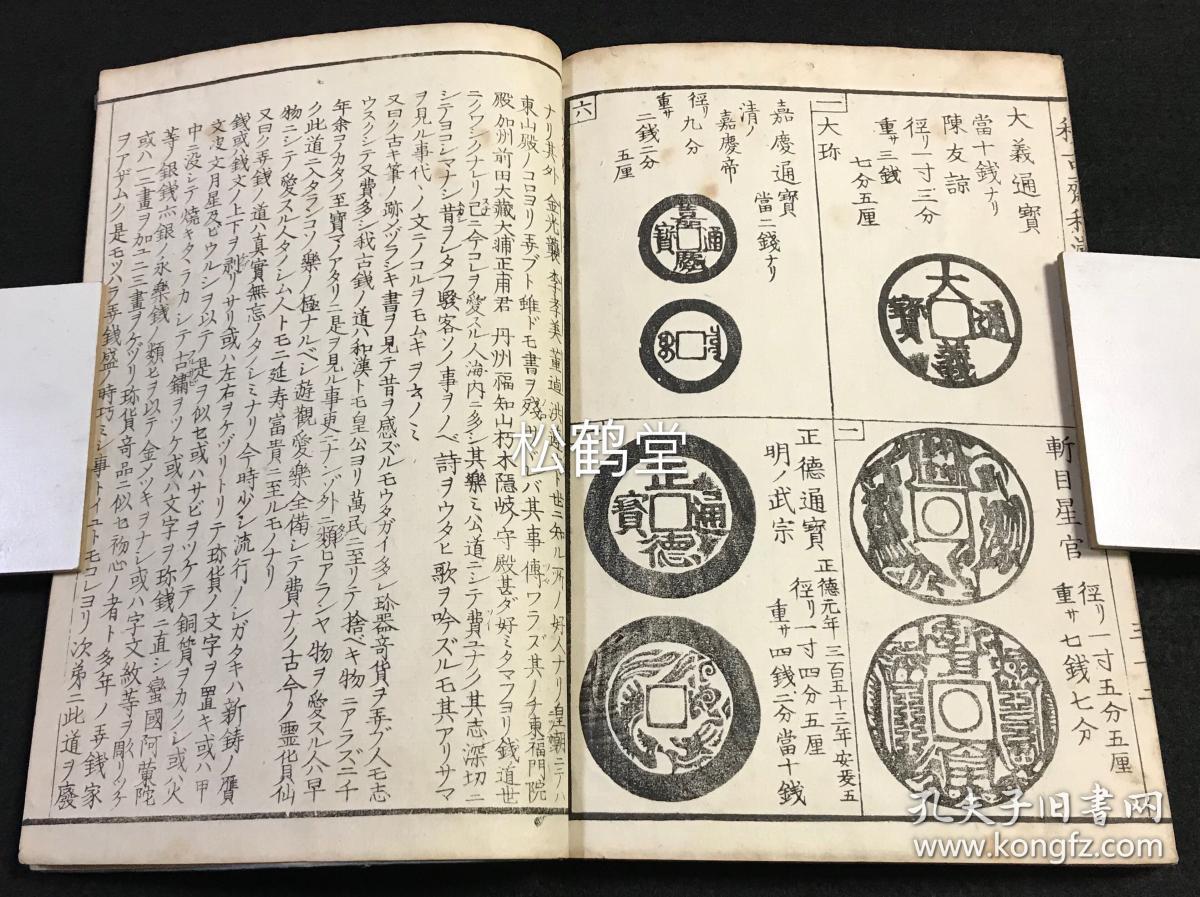 大義通寶
當十銭ナリ
陳友諒
徑リ一寸三分
重サ三銭
七分五厘
大
義
通
寶
一
大珎
嘉慶通寶
當二銭ナリ
清ノ
嘉慶帝
徑リ九分
重サ
二銭二分
五厘
嘉
慶
通
寶
六
斬目星官
徑リ一寸五分五厘
重サ七銭七分
一
正德通寶
正德元年
三百五十三年安
五
明ノ武宗
徑リ一寸四分五厘
重サ四銭二分當十銭
正
德
通
寶
ナリ其外
金光襲
李孝美
董逌
洪
世ニ知ル所ノ好人ナリ
皇朝ニテハ
東山殿ノコロヨリ弄ブト雖ドモ書ヲ残
バ其事傳ワラズ其ノチ東福門院
殿加州前田大藏大浦正甫君
丹州福知山朽木隠岐ノ守殿甚ダ好ミタマフヨリ銭道世
ニクワシクナレリ已ニ今コレヲ愛スル人海内ニ多シ其樂ミ公道ニシテ費ユナク其志深切ニ
シテヨコシマナシ昔ヲシタフ騒客ソノ事ヲノベ詩ヲウタヒ歌ヲ吟ズルモ其アリサマ
ヲ見ル事代ノ文ニノコルヲモムキヲ
ノミ
又曰ク古キ筆ノ跡メヅラシキ書ヲ見テ昔ヲ感ズルモウタガイ多シ珍器奇貨ヲ弄ブ人モ志
ウスクシテ又費多シ我古銭ノ道ハ和漢トモ皇公ヨリ萬民ニ至リテ捨ベキ物ニアラズ二千
年余コノカタノ至寶マノアタリニ是ヲ見ル事更ニナンゾ外ニ類ヒアランヤ物ヲ愛スル人早
ク此道ニ入タランコソ樂ノ極ナルベシ遊觀愛樂全備シテ費ナク古今ノ霊貨仙
物ニシテ愛スル人タノシム人トモニ延寿富貴ニ至ルモノナリ
又曰ク弄銭ノ道ハ真實無忘ノタノシミナリ今時少シ流行ノシガタキハ新鋳ノ贋
銭或ハ銭文ノ上下ヲ剥リサリ或ハ左右ヲケヅリトリテ珎貨ノ文字ヲ置キ或ハ甲
文
文月星及ビウルシヲ以テ是ヲ似セ或ハサビヲツケテ銅質ヲカクシ或ハ火
中ニ没シテ焼キタ
ラカシテ古鏽ヲツケ或ハ文字ヲ珎銭ニ直シ蠻國阿蘭陀
等ノ銀銭
銀ノ永樂銭ノ類ヒヲ以テ金メツキヲナシ或ハ字文紋等ヲ彫
ツケ
或ハ一二畫ヲ加エ二三畫ヲケヅリ珎貨奇品ニ似セ初心ノ者ト多年ノ弄銭家
ヲアザムク是モツハラ弄銭盛ノ時巧ミシ事トイエトモコレヨリ次弟ニ此道ヲ廢
松鹤堂
孔夫子旧书网
www.kongfz.com